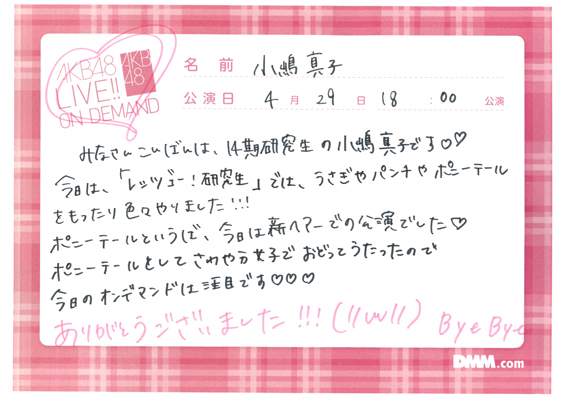 AKB48
LIVE!!
ON DEMAND
AKB
48
名前 小嶋真子
公演日 4月29日 18:00 公演
みなさんこんばんは、14期研究生の小嶋真子です♡♡
今日は、「レッツゴー!研究生」では、うさぎやパンチやポニーテール
をもったり色々やりました!!!
ポニーテールといえば、今日は新ヘアーでの公演でした♡
ポニーテールをしてさわやか女子でおどってうたったので
今日のオンデマンドは注目です♡♡♡
ありがとうございました!!! (//∪∪//) Bye Bye
DMM.com